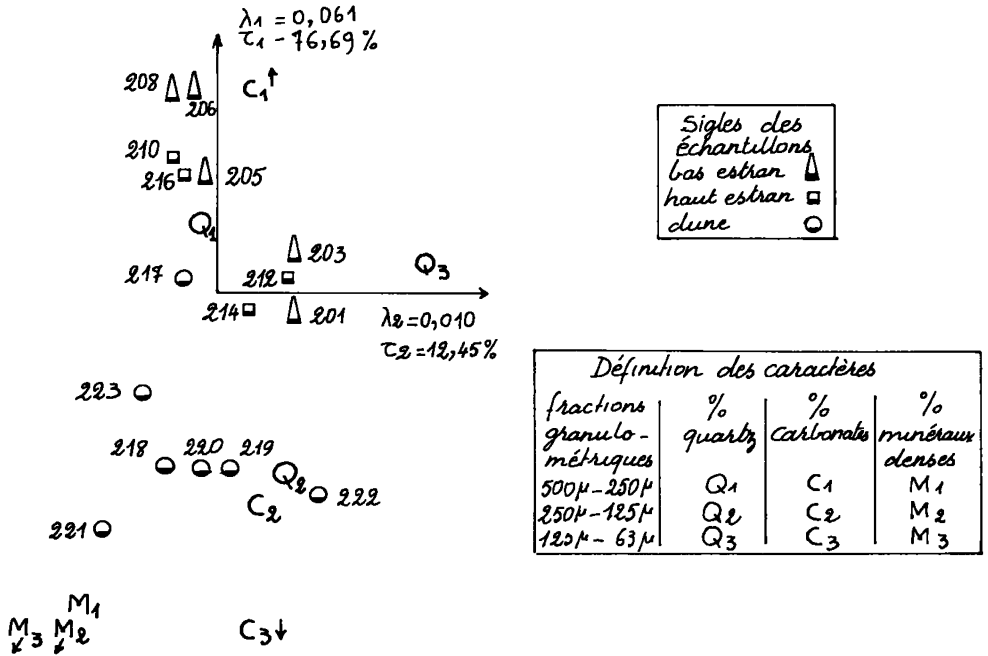 λ1 = 0,061
τ1 - 76,69%
208
206
C1
210
216
205
Q1
203
Q3
217
212
214
201
λ2 = 0,010
τ2 = 12,45%
223
218
220
219
Q2
222
C2
221
M1
M3
M2
C3
Sigles des
échantillons
bas estran
haut estran
dune
Définition des caractères
fractions % % %
granulo- quartz carbonates minéraux
métriques denses
500μ-250μ Q1 C1 M1
250μ-125μ Q2 C2 M2
125μ- 63μ Q3 C3 M3